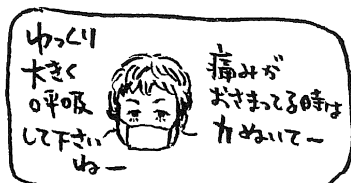 ゆっくり
大きく
呼吸
して下さい
ねー
痛みが
おさまってる時は
力ぬいてー